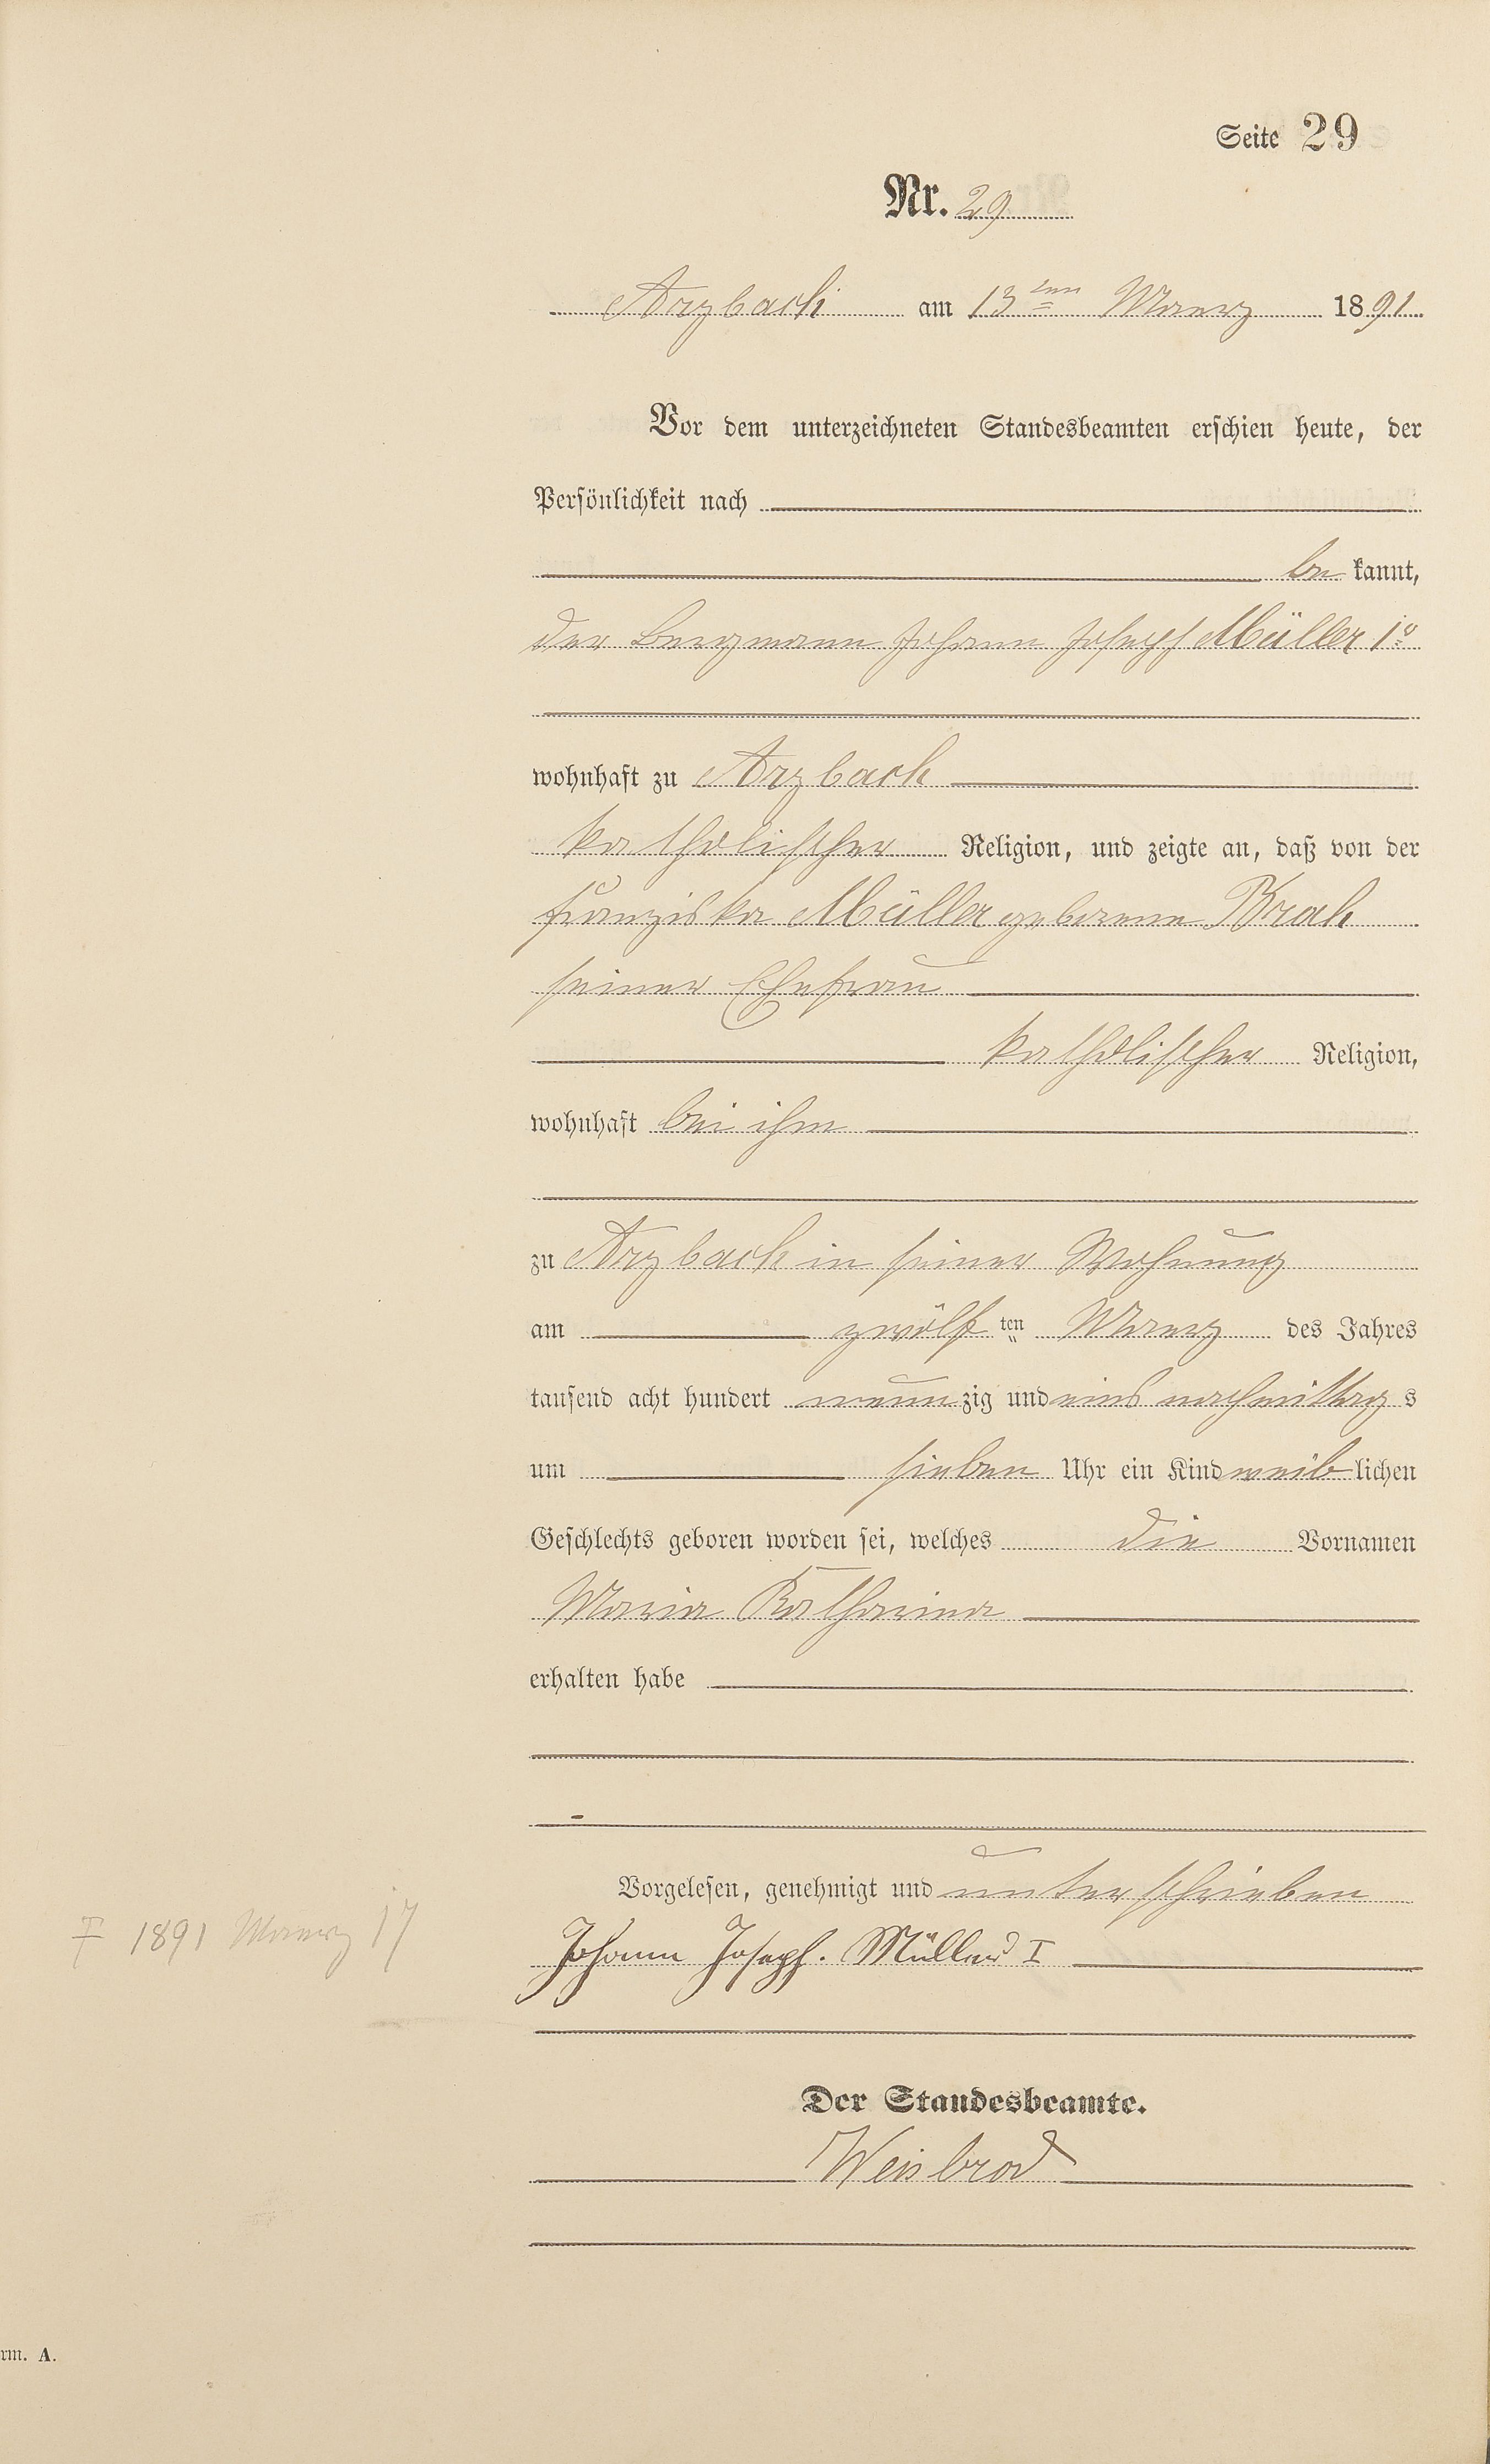 Seite 29
Nr. 29
Arzbach am 13ten Maerz 1891
Vor dem unterzeichneten Standesbeamten erschien heute, der
Persönlichkeit nach
be kannt,
der Bergmann Johann Joseph Müller 1r
wohnhaft zu Arzbach
katholischer Religion, und zeigte an, daß von der
Franziska Müller geborene Brah
seiner Ehefrau
katholischer Religion,
wohnhaft bei ihm
zu Arzbach in seiner Wohnung
am zwölf ten Maerz des Jahres
tausend acht hundert neun zig und eins nachmittag s
um sieben Uhr ein Kind weib lichen
Geschlechts geboren worden sei, welches die Vornamen
Maria Katharina
erhalten habe
Vorgelesen, genehmigt und unterschrieben
† 1891 Maerz 17
Johann Joseph. Müller I
Der Standesbeamte.
Weisbrod
rm. A.